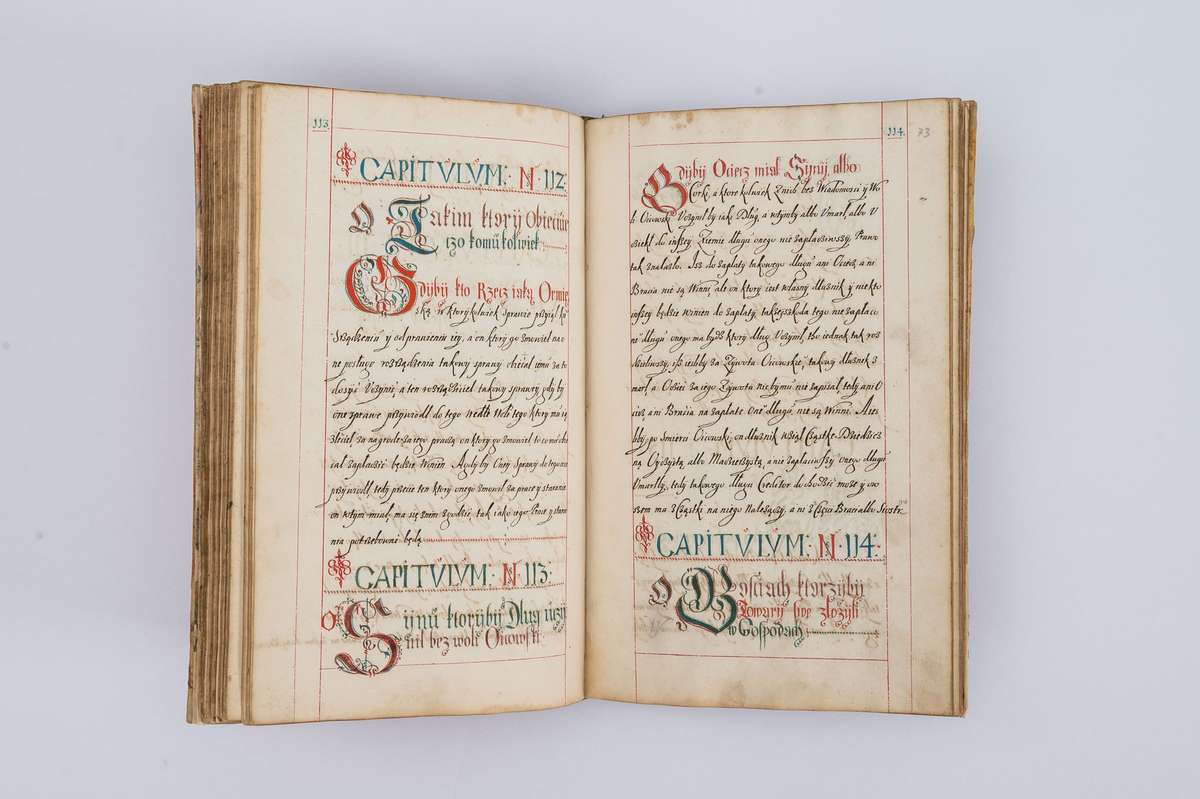 113.
CAPITVLVM: N 112
O Takim ktorÿ Obieciúie
czo komú kolwiek
Gdÿbÿ kto Rzecz iaką Ormię
ską w ktorykolwiek sprawie przyiął ku
rządzeniu y odprawieniu iey, a on który go zmowieł na
ne posługe rozrządzenia takowy sprawy obiciał iemu za to
dosyć Uczynić, a ten rozrządziciel takowy sprawy gdy by
one sprawe przywiodł do tego wedle Woli tego ktory mu ią
zlecieł, za nagrode za iego pracą on ktory go zmowieł to co mu obie
ciał zapłacić będzie Winien. A gdy by Oney sprawy do tego nie
przywiodł, tedy przecie ten ktory onego zmowił za prace y staranie
on w tym miał, ma się z niem zgodzić tak iako iego Prace y stara
nia potrzebowne będą
CAPITVLVM: N 113
O Sÿnú ktorÿbÿ Dług úczÿ
nił bez woli Oÿcowski
114. 73
Gdÿbÿ Ociecz miał Sÿnÿ, albo
Corki, a ktore kolwiek Znich bes Wiadomosci y Wo
li Oicowski Uczynił by iaki Dług, a wtymby albo Umarł, albo U
ciekł do inszey Ziemie długu onego nie zapłaciwszy, Prawo
tak znalasło. Isz do zapłaty takowego długu ani Ociec, ani
Bracia nie są Winni, ale on ktory iest własny dłusnik y niekto
inszy będzie winien do zapłaty, także szkoda tego nie zapłaco
ne długu onego ma bydz ktory dług Uczynił, tho iednak tak roz
dzieliwszy, isz iesliby za Zywota Oicowskie takowy dłusnik z
marł, a Ociec za iego Zywota nic by mu nie zapisał, tedy ani O
ciec ani Bracia na zapłate One długu, nie są Winni. A ies
liby po smierci Oicowski, on dłusnik wział Cząstke Dziedzicz
ną Oyczystą albo Macierzystą, a nie zapłaciwszy onego długu
Umarłby, tedy takowego długu Creditor dochodzić może y ow
szem ma z Cząstki na niego Należący, a ni z Części Braci albo Siostr.
CAPITVLVM: N 114.
O Gosciach ktorzÿbÿ
Towarÿ swe złożÿli
w Gospodach